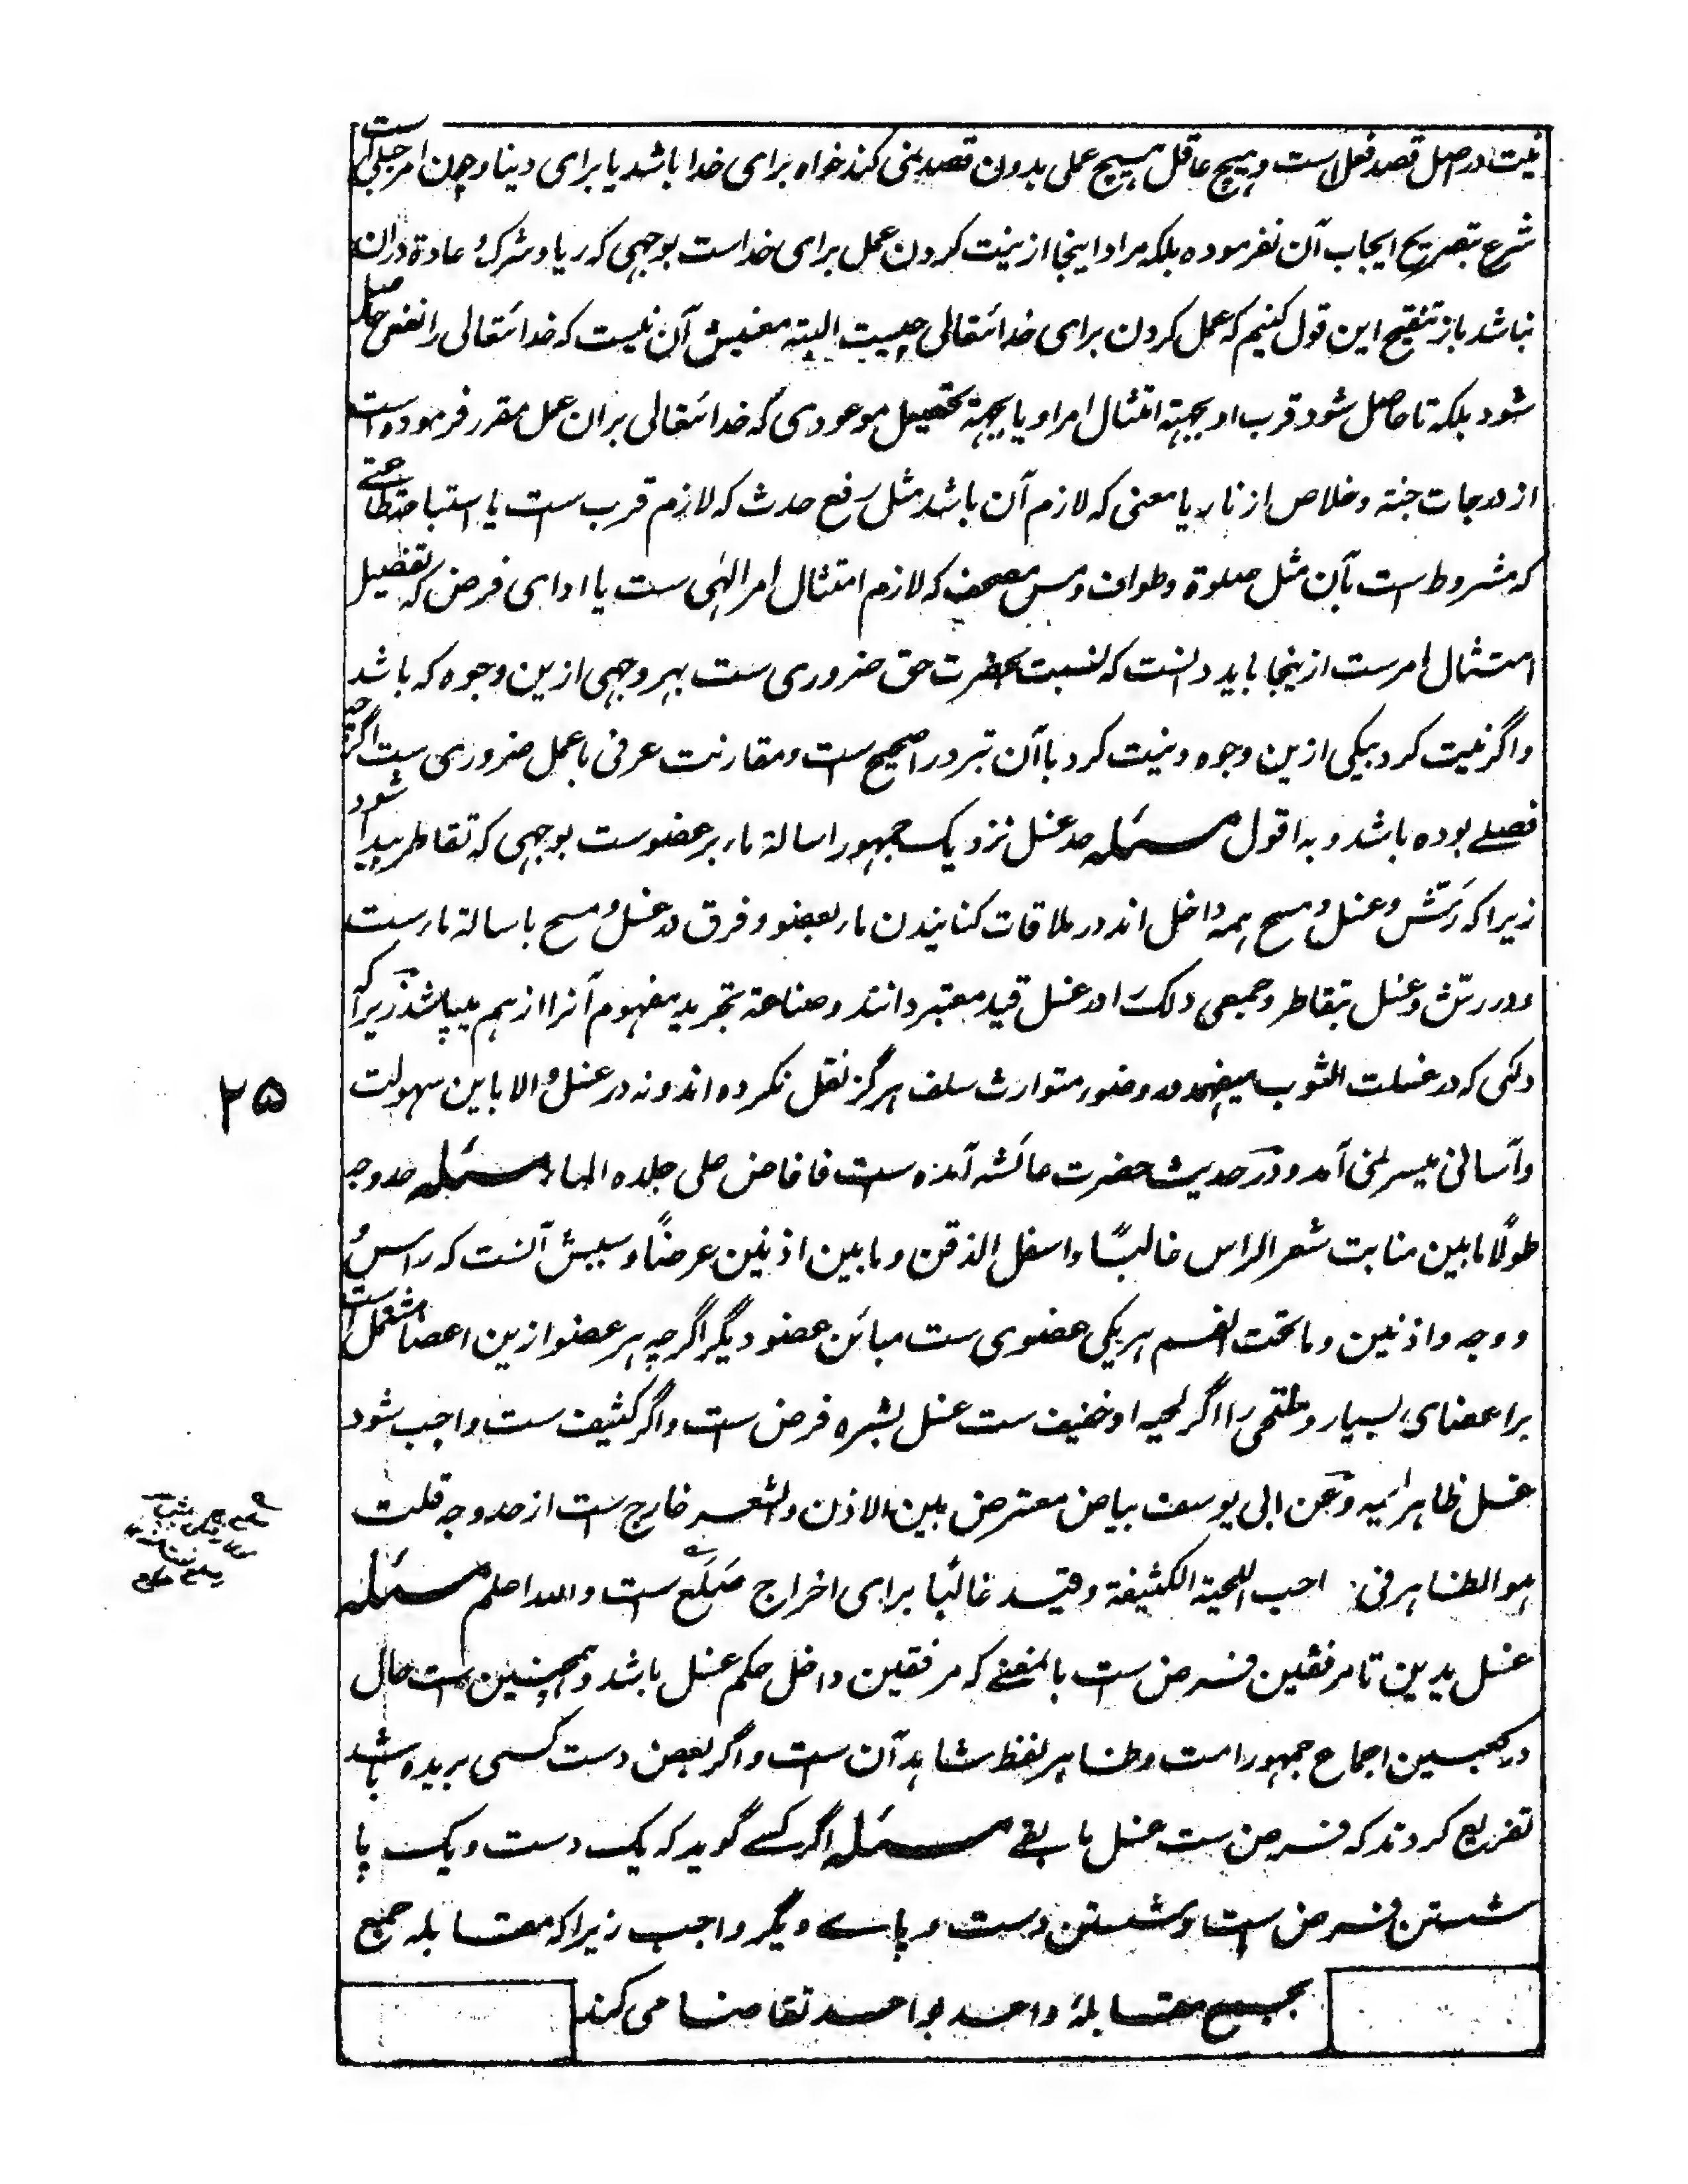 نیت در اصل قصد فعل است و هیچ عاقل هیچ عملی بدون قصد نمی کند خواه برای خدا باشد یا برای دنیا و چون امر جبلی است
شرع بتصریح ایجاب آن نفرموده بلکه مراد اینجا از نیت کردن عمل برای خداست بوجهی که ریا و شرک عادة دران
نباشد باز تنقیح این قول کنیم که عمل کردن برای خدائتعالی چیست البته معنیش آن نیست که خدائتعالی را نفعی حاصل
شود بلکه تا حاصل شود قرب او بجهة امتثال امر او یا بجهة تحصیل موعودی که خدائتعالی بران عمل مقرر فرموده است
از درجات جنة و خلاص از نار یا معنی که لازم آن باشد مثل رفع حدث که لازم قرب ست یا استباحة طاعتے
که مشروط است بآن مثل صلوة و طواف و مس مصحف که لازم امتثال امر الٰهی ست یا ادای فرض که تفصیل
امتثال امرست ازینجا باید دانست که نسبت بحضرت حق ضروری ست بهر وجهی ازین وجوه که باشد
و اگر نیت کرد بیکی ازین وجوه و نیت کرد با آن تبرد را صحیح ست و مقارنت عرفی با عمل ضروری ست اگرچه
فصلے بوده باشد و به اقول مسئله حد غسل نزدیک جمهور اسالة ماء بر عضوست بوجهی که تقاطر پیدا شود
زیراکه رش و غسل و مسح همه داخل اند در ملاقات کنانیدن ماء بعضو و فرق در غسل و مسح باسالة ماءست
و در رش و غسل بتقاطر و جمعی دلک را در غسل قید معتبر دانند و صناعة تجرید مفهوم آنرا از هم میپاشد زیراکه
دلکی که در غسلت الثوب میفهمد در وضوء متوارث سلف هرگز نقل نکرده اند و نه در غسل والا باین سهولت
و آسانی میسر نمی آمد و در حدیث حضرت عائشه آمده ست فافاض علی جلده الماء مسئله حد وجه
طولًا مابین منابت شعر الراس غالبًا و اسفل الذقن و مابین اذنین عرضًا و سببش آنست که راس
و وجه و اذنین و ماتحت الفم هر یکی عضوی ست مبائن عضو دیگر اگرچه هر عضو ازین اعضا مشتمل است
بر اعضای بسیار و ملتحی را اگر لحیه او خفیف ست غسل بشره فرض ست و اگر کثیف ست واجب شود
غسل ظاهر لحیه و عن ابی یوسف بیاض معترض بین الاذن والشعر خارج ست از حد وجه قلت
هو الظاهر فی احب اللحیة الکثیفة و قید غالبًا برای اخراج صلع ست والله اعلم مسئله
غسل یدین تا مرفقین فرض ست بالمعنی که مرفقین داخل حکم غسل باشد و همچنین ست حال
در کعبین اجماع جمهور امت و ظاهر لفظ شاهد آن ست و اگر بعض دست کسی بریده باشد
تفریع کردند که فرض ست غسل مابقے مسئله اگر کسے گوید که یک دست و یک پا
شستن فرض ست و شستن دست و پاے دیگر واجب زیراکه مقابله جمیع
بجمیع مقابلهٔ واحد بواحد تقاضا می کند
۲۵